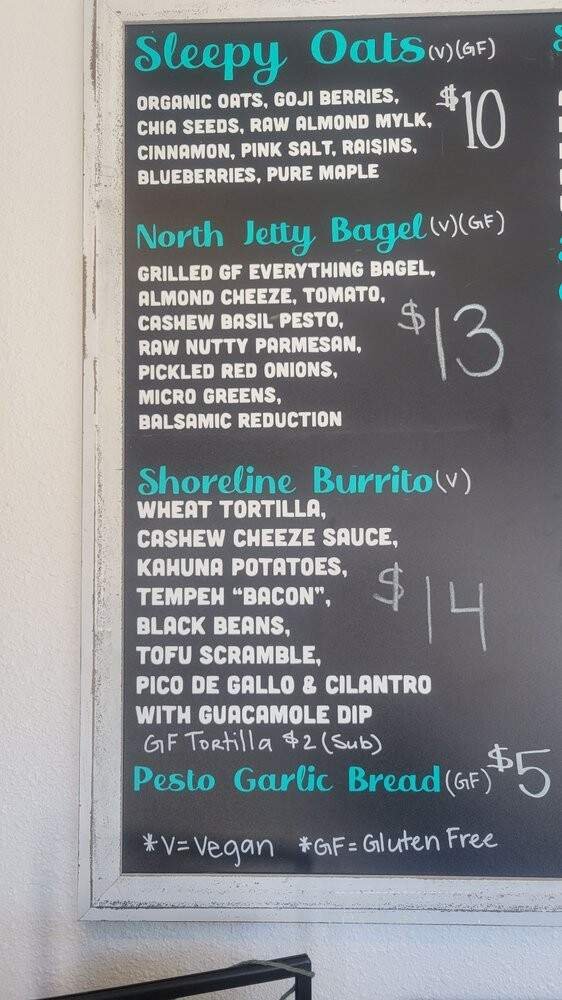 Sleepy Oats (V)(GF)
ORGANIC OATS, GOJI BERRIES,
CHIA SEEDS, RAW ALMOND MYLK,
CINNAMON, PINK SALT, RAISINS,
BLUEBERRIES, PURE MAPLE
$10
North Jetty Bagel (V)(GF)
GRILLED GF EVERYTHING BAGEL,
ALMOND CHEEZE, TOMATO,
CASHEW BASIL PESTO,
RAW NUTTY PARMESAN,
PICKLED RED ONIONS,
MICRO GREENS,
BALSAMIC REDUCTION
$13
Shoreline Burrito (V)
WHEAT TORTILLA,
CASHEW CHEEZE SAUCE,
KAHUNA POTATOES,
TEMPEH “BACON”,
BLACK BEANS,
TOFU SCRAMBLE,
PICO DE GALLO & CILANTRO
WITH GUACAMOLE DIP
$14
GF Tortilla $2 (Sub)
Pesto Garlic Bread (GF) $5
*V=Vegan *GF=Gluten Free